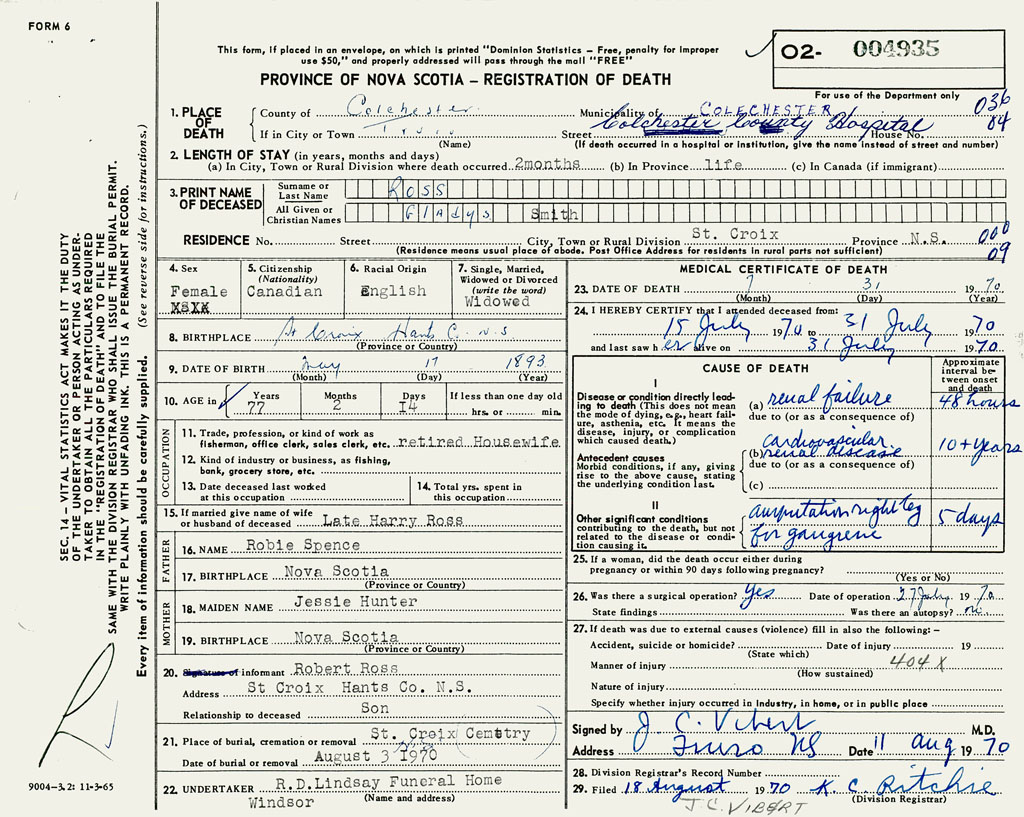 FORM 6
This form, if placed in an envelope, on which is printed "Dominion Statistics – Free, penalty for improper
use $50," and properly addressed will pass through the mail "FREE"
PROVINCE OF NOVA SCOTIA – REGISTRATION OF DEATH
02- 004935
For use of the Department only
036
04
1. PLACE OF DEATH
County of Colchester Municipality of COLECHESTER
If in City or Town Truro Street Colchester County Hospital House No.
(Name) (If death occurred in a hospital or institution, give the name instead of street and number)
2. LENGTH OF STAY (in years, months and days)
(a) In City, Town or Rural Division where death occurred 2months (b) In Province life (c) In Canada (if immigrant)
3. PRINT NAME OF DECEASED
Surname or Last Name ROSS
All Given or Christian Names Gladys Smith
RESIDENCE No. Street City, Town or Rural Division St. Croix Province N.S.
(Residence means usual place of abode. Post Office Address for residents in rural parts not sufficient)
000
09
4. Sex
Female
5. Citizenship
(Nationality)
Canadian
6. Racial Origin
English
7. Single, Married,
Widowed or Divorced
(write the word)
Widowed
8. BIRTHPLACE St Croix Hants C. N.S
(Province or Country)
9. DATE OF BIRTH May 17 1893
(Month) (Day) (Year)
10. AGE in Years Months Days If less than one day old
77 2 14 hrs. or min.
OCCUPATION
11. Trade, profession, or kind of work as
fisherman, office clerk, sales clerk, etc. retired Housewife
12. Kind of industry or business, as fishing,
bank, grocery store, etc.
13. Date deceased last worked
at this occupation
14. Total yrs. spent in
this occupation
15. If married give name of wife
or husband of deceased Late Harry Ross
FATHER
16. NAME Robie Spence
17. BIRTHPLACE Nova Scotia
(Province or Country)
MOTHER
18. MAIDEN NAME Jessie Hunter
19. BIRTHPLACE Nova Scotia
(Province or Country)
20. Signature of informant Robert Ross
Address St Croix Hants Co. N.S.
Relationship to deceased Son
21. Place of burial, cremation or removal St. Croix Cemttry
Date of burial or removal August 3 1970
22. UNDERTAKER R.D.Lindsay Funeral Home
Windsor (Name and address)
MEDICAL CERTIFICATE OF DEATH
23. DATE OF DEATH 7 31 1970
(Month) (Day) (Year)
24. I HEREBY CERTIFY that I attended deceased from:
15 July 1970 to 31 July 1970
and last saw her alive on 31 July 1970
CAUSE OF DEATH
Approximate
interval be-
tween onset
and death
I
Disease or condition directly lead-
ing to death (This does not mean
the mode of dying, e.g., heart fail-
ure, asthenia, etc. It means the
disease, injury, or complication
which caused death.)
(a) renal failure 48 hours
due to (or as a consequence of)
Antecedent causes
Morbid conditions, if any, giving
rise to the above cause, stating
the underlying condition last.
cardiovascular
(b) renal disease 10+years
due to (or as a consequence of)
(c)
II
Other significant conditions
contributing to the death, but not
related to the disease or condi-
tion causing it.
amputation right leg
for gangrene 5 days
25. If a woman, did the death occur either during
pregnancy or within 90 days following pregnancy?
(Yes or No)
26. Was there a surgical operation? Yes Date of operation 27 July 1970
State findings Was there an autopsy? no
27. If death was due to external causes (violence) fill in also the following: –
Accident, suicide or homicide? Date of injury 19
(State which)
404 X
Manner of injury
(How sustained)
Nature of injury
Specify whether injury occurred in industry, in home, or in public place
Signed by J C. Vibert M.D.
Address Truro NS Date 11 aug 1970
28. Division Registrar's Record Number
29. Filed 18 August 1970 K. C. Ritchie
(Division Registrar)
J.C. VIBERT
SEC. 14 – VITAL STATISTICS ACT MAKES IT THE DUTY
OF THE UNDERTAKER OR PERSON ACTING AS UNDER-
TAKER TO OBTAIN ALL THE PARTICULARS REQUIRED
IN THE "REGISTRATION OF DEATH" AND TO FILE THE
SAME WITH THE DIVISION REGISTRAR WHO SHALL ISSUE THE BURIAL PERMIT.
WRITE PLAINLY WITH UNFADING INK. THIS IS A PERMANENT RECORD.
Every item of information should be carefully supplied. (See reverse side for instructions.)
9004-3.2: 11-3-65